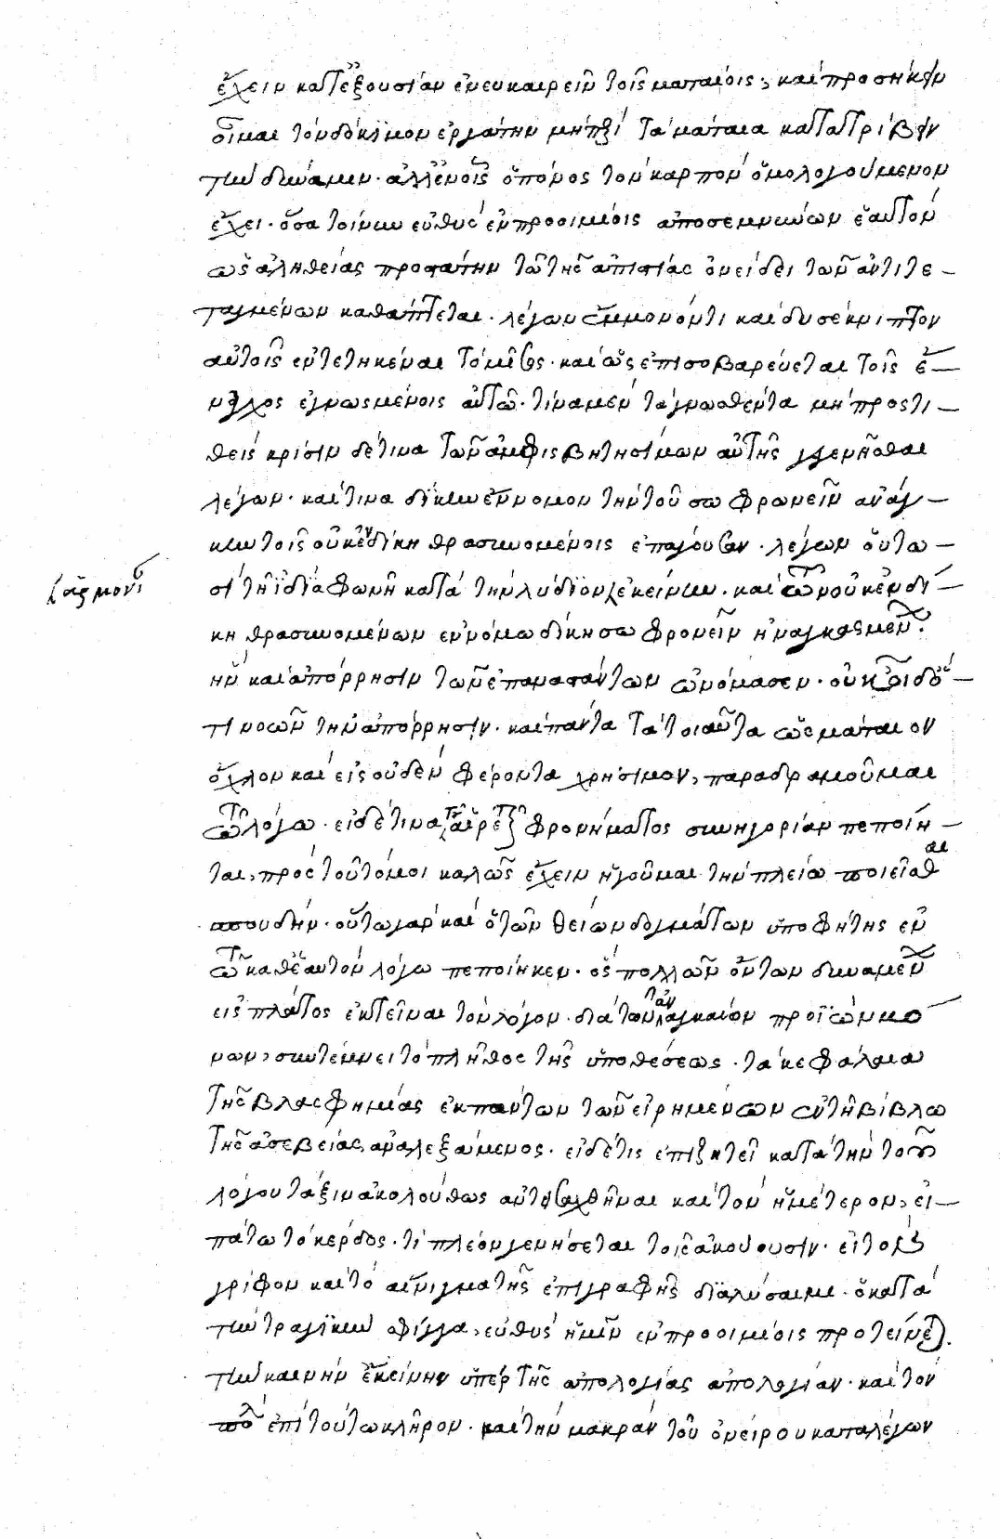 ἔχειν κατ' ἐξουσίαν ἐνευκαιρεῖν τοῖς ματαίοις, καὶ προσήκειν
οἶμαι τὸν δόκιμον ἐργάτην μὴ περὶ τὰ μάταια κατατρίβειν
τὴν δύναμιν· ἀλλ' ἐν οἷς ὁ πόνος τὸν καρπὸν ὁμολογούμενον
ἔχει· ὅσα τοίνυν εὐθὺς ἐν προοιμίοις ἀποσεμνύνων ἑαυτὸν
ὡς ἀληθείας προστάτην τῶ τῆς ἀπιστίας ὀνείδει τῶν ἀντιτε-
ταγμένων καθάπτεται· λέγων ἔμμονόν τι καὶ δυσέκνιπτον
αὐτοῖς ἐντετηκέναι τὸ μῖσος· καὶ ὡς ἐπισοβαρεύεται τοῖς ἔ-
ναγχος ἐγνωσμένοις αὐτῶ· τίνα μὲν τὰ γνωσθέντα μὴ προστι-
θεὶς κρίσιν δέ τινα τῶν ἀμφισβητησίμων αὐτῆς γεγενῆσθαι
λέγων· καί τινα δίκην ἔννομον τὴν τοῦ σωφρωνεῖν ἀνάγ-
κην τοῖς οὐκ ἐν δίκη θρασυνομένοις ἐπάγουσαν· λέγων οὕτω-
σὶ τῆ ἰδία φωνῆ κατὰ τὴν λύδιον ἐκείνην· καὶ τῶν οὐκ ἐν δί-
ἁρμονίαν
κη θρασυνομένων ἐννόμω δίκη σωφρονεῖν ἠναγκασμένων·
ἣν καὶ ἀπόρρησιν τῶν ἐπαναστάντων ὠνόμασεν· οὐκ οἶδ' ὅ-
τι νοῶν τὴν ἀπόρρησιν· καὶ πάντα τὰ τοιαῦτα ὡς μάταιον
ὄχλον καὶ εἰς οὐδὲν φέροντα χρήσιμον, παραδραμοῦμαι
τῶ λόγω· εἰ δέ τινα τῆς αἱρετικοῦ φρονήματος συνηγορίαν πεποίη-
ται, πρὸς τοῦτό μοι καλῶς ἔχειν ἡγοῦμαι τὴν πλείω ποιεῖσθαι
σπουδήν· οὕτω γὰρ καὶ ὁ τῶν θείων δογμάτων ὑποφήτης ἐν
τῶ καθ' ἑαυτὸν λόγω πεποίηκεν· ὃς πολλῶν ὄντων δυναμένων
εἰς πλάτος ἐκτεῖναι τὸν λόγον· διὰ τῶν ἀναγκαίων προϊὼν μό-
νων, συντέμνει τὸ πλῆθος τῆς ὑποθέσεως· τὰ κεφάλαια
τῆς βλασφημίας ἐκ πάντων τῶν εἰρημένων ἐν τῆ βίβλω
τῆς ἀσεβείας, ἀναλεξάμενος· εἰ δέ τις ἐπιζητεῖ κατὰ τὴν τοῦ
λόγου τάξιν ἀκολούθως ἀντιταχθῆναι καὶ τὸν ἡμέτερον, εἰ-
πάτω τὸ κέρδος· τί πλέον γενήσεται τοῖς ἀκούουσιν· εἰ τὸν
γρίφον καὶ τὸ αἴνιγμα τῆς ἐπιγραφῆς διαλύσαιμι· ὃ κατὰ
τὴν τραγικὴν σφίγγα, εὐθὺς ἡμῖν ἐν προοιμίοις προτείνει.
τὴν καινὴν ἐκείνην ὑπὲρ τῆς ἀπολογίας ἀπολογίαν· καὶ τὸν
πολὺν ἐπὶ τούτω κλῆρον· καὶ τὴν μακρὰν τοῦ ὀνείρου καταλέγων